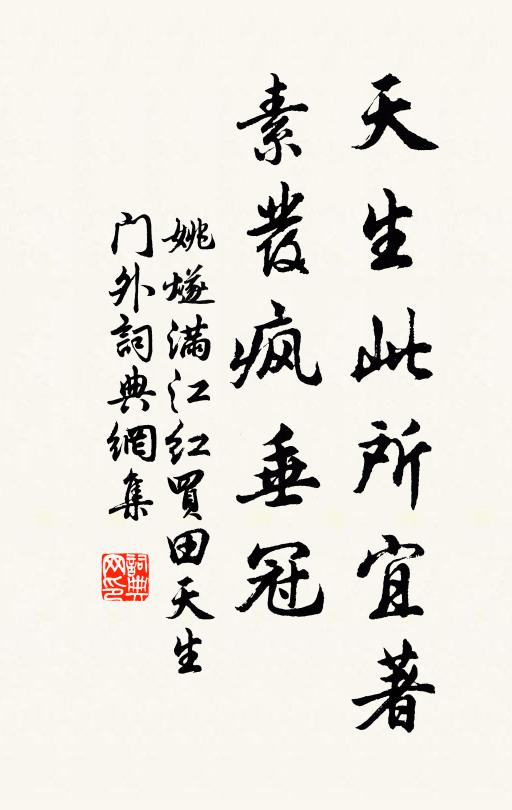 天生此所宜著
素發疯垂冠
姚燧满江红買田天生
门外詞典網集
詞典网印